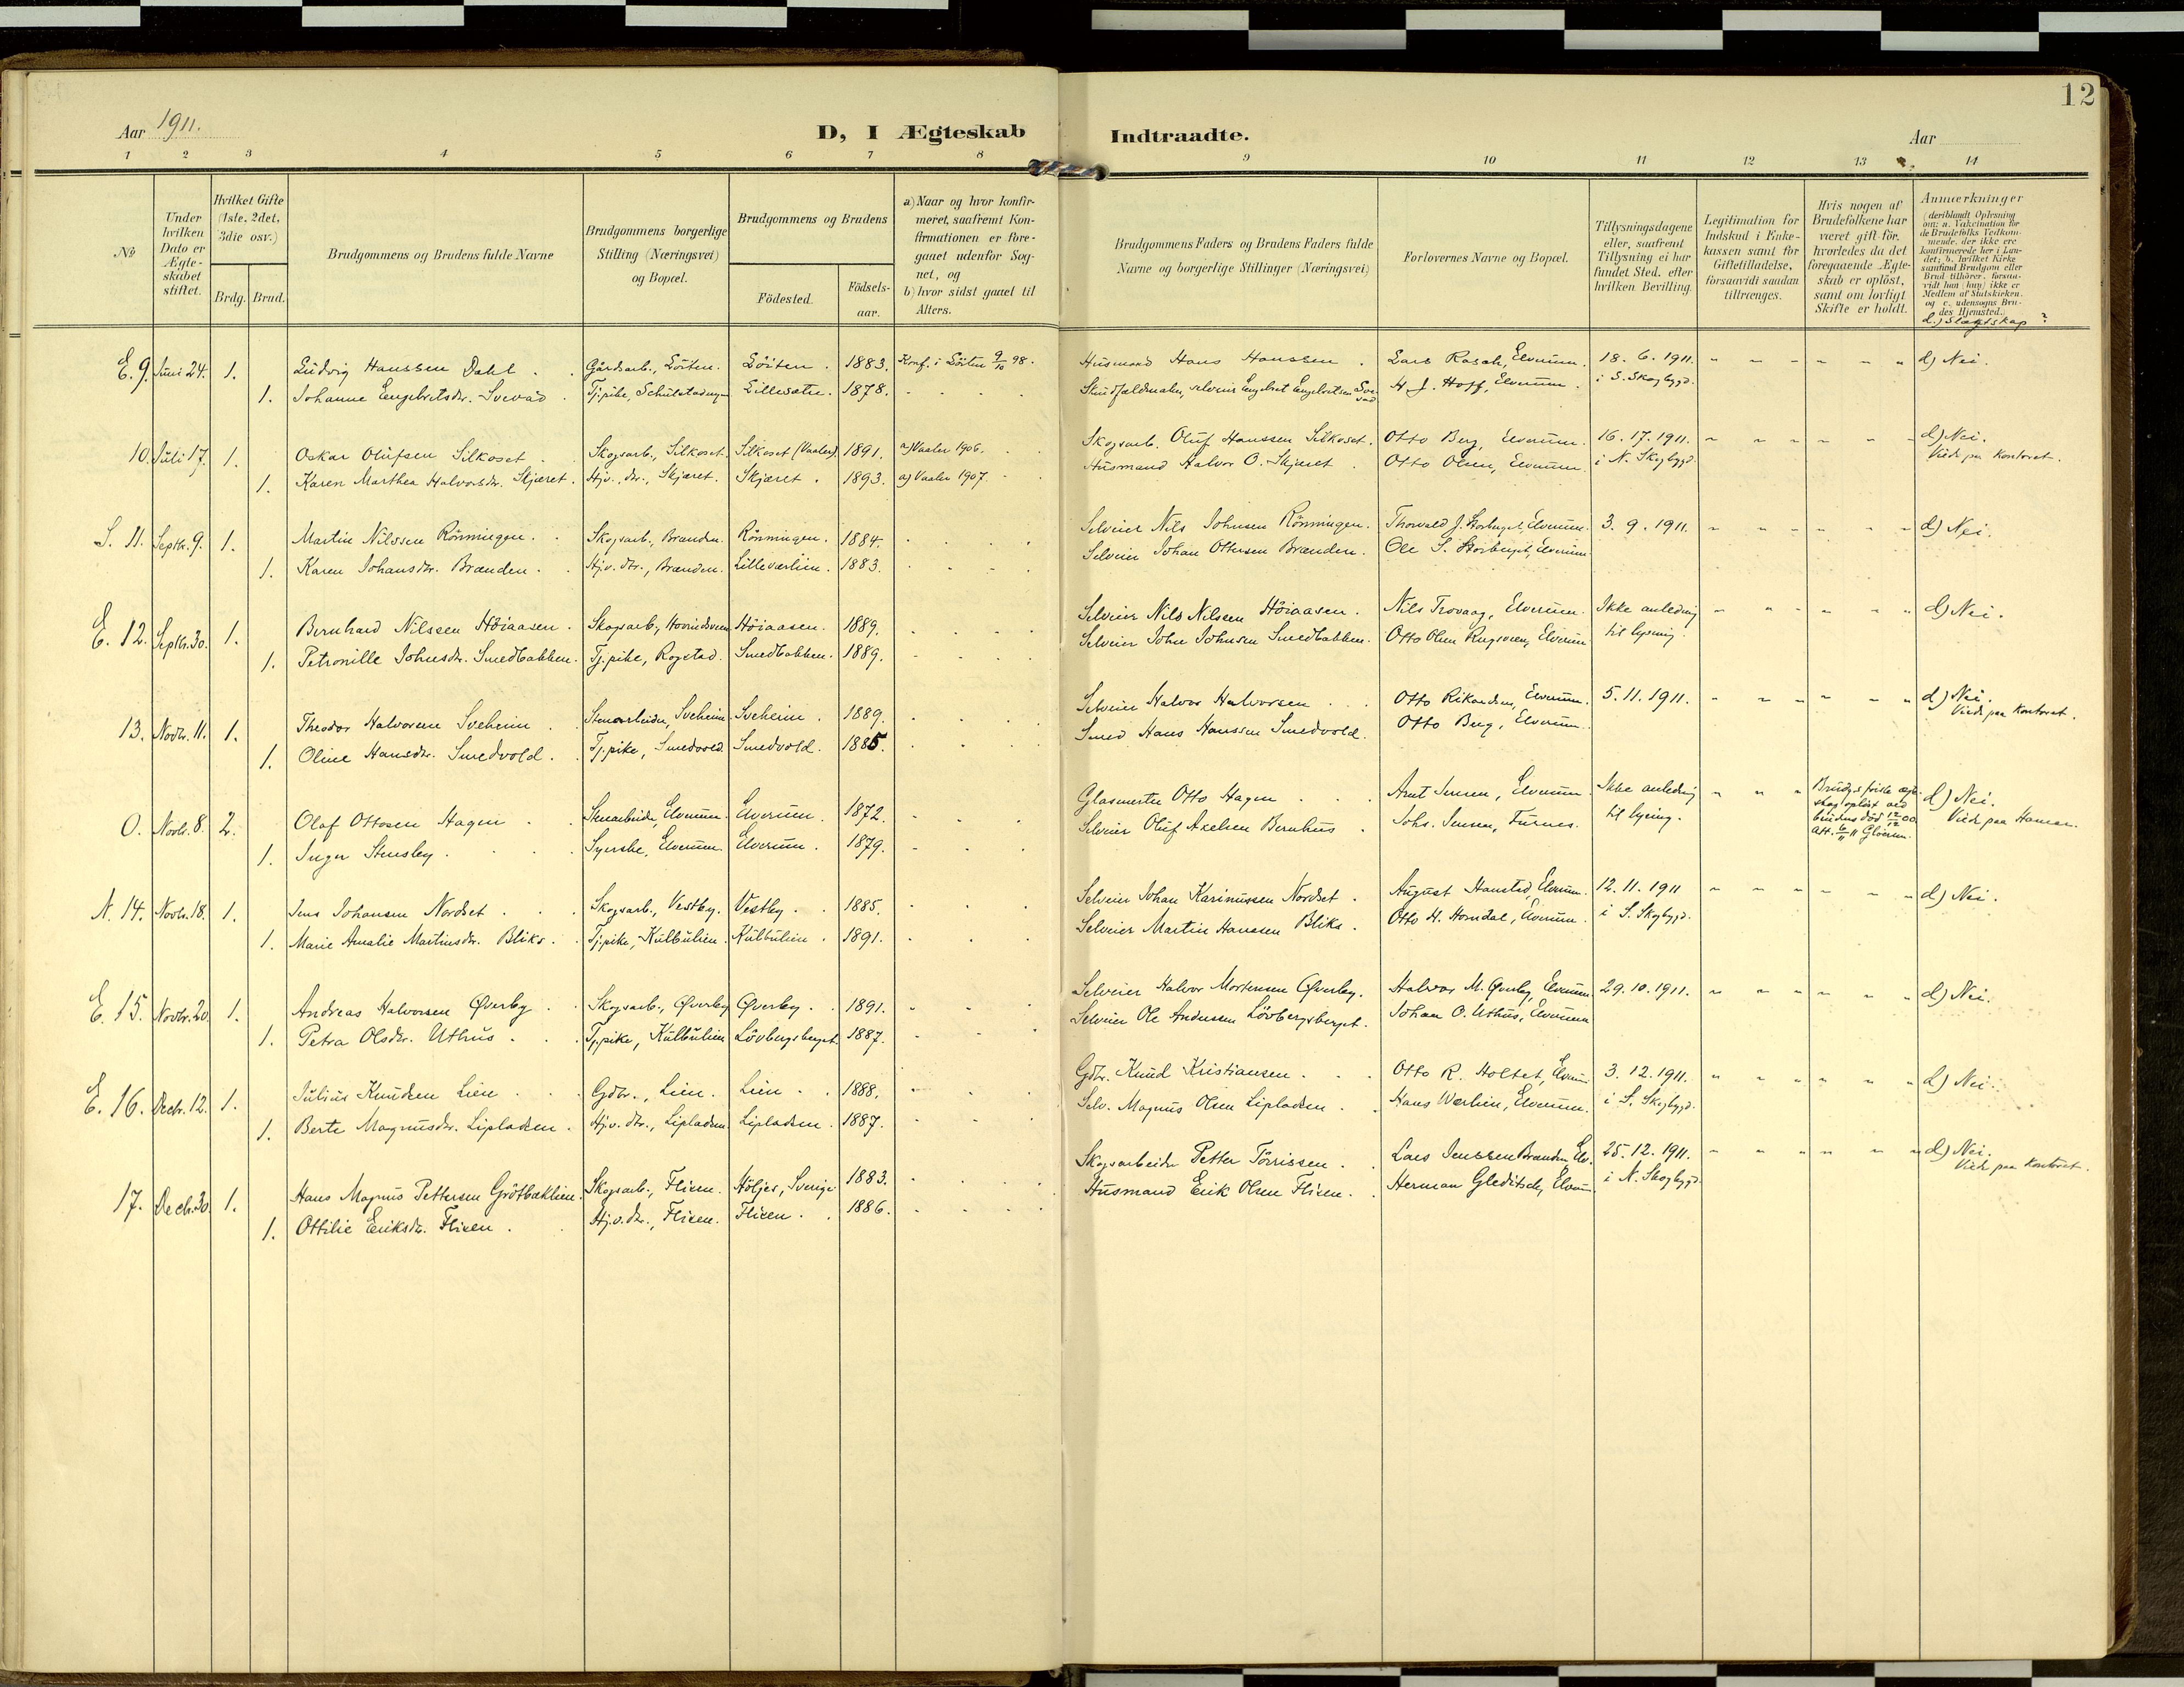 12
Aar 1911.
D, I Ægteskab Indtraadte.
Aar
1 2 3 4 5 6 7 8 9 10 11 12 13 14
No
Under hvilken Dato er Ægteskabet stiftet.
Hvilket Gifte (1ste, 2det, 3die osv.)
Brdg. Brud.
Brudgommens og Brudens fulde Navne
Brudgommens borgerlige Stilling (Næringsvei) og Bopæl.
Brudgommens og Brudens
Födested.
Födselsaar.
a) Naar og hvor konfirmeret, saafremt Konfirmationen er foregaaet udenfor Sognet, og
b) hvor sidst gaaet til Alters.
Brudgommens Faders og Brudens Faders fulde Navne og borgerlige Stillinger (Næringsvei)
Forlovernes Navne og Bopæl.
Tillysningsdagene eller, saafremt Tillysning ei har fundet Sted, efter hvilken Bevilling.
Legitimation for Indskud i Enkekassen samt for Giftetilladelse, forsaavidt saadan tiltrænges.
Hvis nogen af Brudefolkene har været gift för, hvorledes da det foregaaende Ægteskab er oplöst, samt om lovligt Skifte er holdt.
Anmærkninger (deriblandt Oplysning om: a. Vakcination for de Brudefolks Vedkommende, der ikke ere konfirmerede her i Landet; b. hvilket Kirkesamfund Brudgom eller Brud tilhörer, forsaavidt han (hun) ikke er Medlem af Statskirken, og c. udensogns Brudes Hjemsted.)
d.) Slægtskap?
E. 9. Juni 24. 1. Ludvig Hanssen Dahl. Gårdsarb., Löiten. Löiten. 1883. Konf. i Löiten 9/10 98. Husmand Hans Hanssen. Lars Rasch, Elverum. 18. 6. 1911. d) Nei.
1. Johanne Engebretsdtr. Svevād. Tj.pike, Lillesæter. 1878. H. J. Hoff, Elverum. i S. Skogbygd.
10. Juli 17. 1. Oskar Olufsen Silkoset. Skogsarb., Silkoset. Silkoset (Vaaler). 1891. a) Vaaler 1906. Skogsarb. Oluf Hanssen Silkoset. Otto Berg, Elverum. 16. 17. 1911. d) Nei.
1. Karen Marthea Halvorsdtr. Skjæret. Hjv. dtr., Skjæret. Skjæret. 1893. a) Vaaler 1907. Husmand Halvor O. Skjæret. Otto Olsen, Elverum. i N. Skogbygd. Viede paa kontoret.
S. 11. Septbr. 9. 1. Martin Nilssen Rönningen. Skogsarb., Brænden. Rönningen. 1884. Selveier Nils Johnsen Rönningen. Thorvald J. Storberget, Elverum. 3. 9. 1911. d) Nei.
1. Karen Johansdtr. Brænden. Hjv. dtr., Brænden. Lilleværlien. 1883. Selveier Johan Ottersen Brænden. Ole S. Storberget, Elverum
E. 12. Septbr. 30. 1. Bernhard Nilssen Höiaasen. Skogsarb., Höiaasen. 1889. Selveier Nils Nilsen Höiaasen. Nils Trovaag, Elverum. Ikke anledning d) Nei.
1. Petronille Johnsdtr. Smedbakken. Tj.pike, Rogstad. Smedbakken. 1889. Selveier John Johnsen Smedbakken. Otto Olsen, Elverum til lysning.
13. Novbr. 11. 1. Theodor Halvorsen Sveheim. Stenarbeider, Sveheim. Sveheim. 1889. Selveier Halvor Halvorsen. Otto Rikardsen, Elverum. 5. 11. 1911. d) Nei.
1. Oline Hansdtr. Smedvold. Tj.pike, Smedvold. Smedvold. 1885. Smed Hans Hanssen Smedvold. Otto Berg, Elverum. Viede paa kontoret.
O. Novbr. 8. 2. Olaf Ottosen Hagen. Stenarbeider, Elverum. Elverum. 1872. Glasmester Otto Hagen. Arnt Jensen, Elverum. Ikke anledning Brudg.s förste ægteskap oplöst ved brudens död 12/12 00. Att. 6/11 11 d) Nei.
1. Inger Stensby. Syerske, Elverum. Elverum. 1879. Selveier Oluf Axelsen Bernhus. Johs. Jensen, Furnes. til lysning. Viede paa Hamar.
N. 14. Novbr. 18. 1. Jens Johansen Nordset. Skogsarb., Vestby. Vestby. 1885. Selveier Johan Karinussen Nordset. August Hansted, Elverum. 12. 11. 1911 d) Nei.
1. Marie Amalie Martinsdtr. Bliks. Tj.pike, Külbulien. Külbulien. 1891. Selveier Martin Hanssen Bliks. Otto H. Horndal, Elverum. i S. Skogbygd.
E. 15. Novbr. 20. 1. Andreas Halvorsen Øverby. Skogsarb., Øverby Øverby. 1891. Selveier Halvor Mortensen Øverby. Halvor M. Øverby, Elverum. 29. 10. 1911. d) Nei.
1. Petra Olsdtr. Uthus. Tj.pike, Külbulien Lövbergsberget. 1887. Selveier Ole Andersen Lövbergsberget. Johan O. Uthus, Elverum
E. 16. Decbr. 12. 1. Julius Knudsen Lien. Gdbr., Lien. Lien. 1888. Gdbr. Knud Kristiansen. Otto R. Holtet, Elverum 3. 12. 1911. d) Nei.
1. Berte Magnusdtr. Lipladsen. Hjv. dtr., Lipladsen. Lipladsen. 1887. Selv. Magnus Olsen Lipladsen. Hans Værlien, Elverum. i S. Skogbygd.
17. Decbr. 30. 1. Hans Magnus Pettersen Grötbæklien. Skogsarb., Flisen. Höljes, Sverige 1883. Skogsarbeider Petter Törrissen. Lars Jenssen Brænden Elv. 25. 12. 1911. d) Nei.
1. Ottilie Eriksdtr. Flisen. Hjv. dtr., Flisen. Flisen. 1886. Husmand Erik Olsen Flisen. Herman Gleditsch, Elverum i N. Skogbygd. Viede paa kontoret.